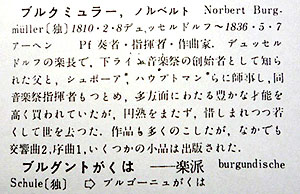 ブルクミュラー, ノルベルト Norbert Burg-
müller〔独〕1810・2・8デュッセルドルフ〜1836・5・7
アーヘン Pf 奏者・指揮者・作曲家. デュッセル
ドルフの楽長で, 下ライン音楽祭の創始者として知ら
れた父と, シュポーア, ハウプトマンらに師事し, 同
音楽祭指揮者もつとめ, 多方面にわたる豊かな才能を
高く買われていたが, 円熟をまたず, 惜しまれつつ若
くして世を去った. 作品も多くのこしたが, なかでも
交響曲2, 序曲1, いくつかの小品は出版された.
ブルグントがくは ——楽派 burgundische
Schule〔独〕 ⇨ ブルゴーニュがくは